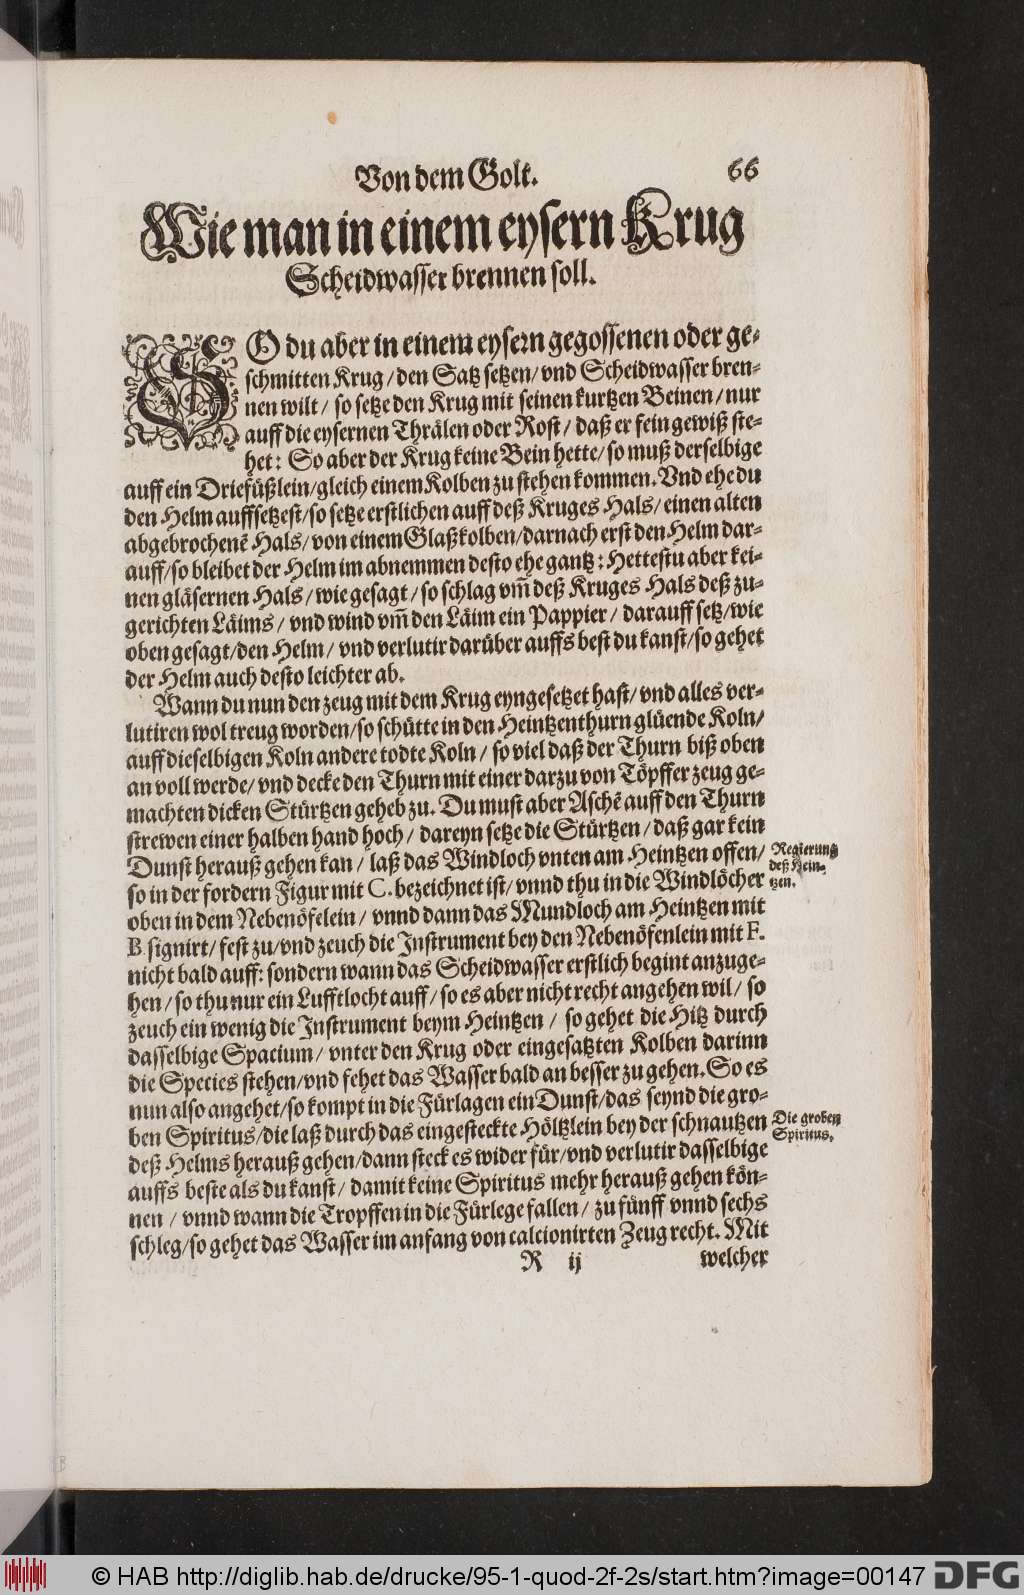 Von dem Golt. 66
Wie man in einem eysern Krug
Scheidwasser brennen soll.
SO du aber in einem eysern gegossenen oder ge-
schmitten Krug / den Satz setzen / vnd Scheidwasser bren-
nen wilt / so setze den Krug mit seinen kurtzen Beinen / nur
auff die eysernen Thrälen oder Rost / daß er fein gewiß ste-
het: So aber der Krug keine Bein hette / so muß derselbige
auff ein Driefüßlein / gleich einem Kolben zu stehen kommen. Vnd ehe du
den Helm auffsetzest / so setze erstlichen auff deß Kruges Hals / einen alten
abgebrochenẽ Hals / von einem Glaßkolben / darnach erst den Helm dar-
auff / so bleibet der Helm im abnemmen desto ehe gantz: Hettestu aber kei-
nen gläsernen Hals / wie gesagt / so schlag vm̃ deß Kruges Hals deß zu-
gerichten Läims / vnd wind vm̃ den Läim ein Pappier / darauff setz / wie
oben gesagt / den Helm / vnd verlutir darüber auffs best du kanst / so gehet
der Helm auch desto leichter ab.
Wann du nun den zeug mit dem Krug eyngesetzet hast / vnd alles ver-
lutiren wol treug worden / so schütte in den Heintzenthurn glüende Koln /
auff dieselbigen Koln andere todte Koln / so viel daß der Thurn biß oben
an voll werde / vnd decke den Thurn mit einer darzu von Töpffer zeug ge-
machten dicken Stürtzen geheb zu. Du must aber Aschẽ auff den Thurn
strewen einer halben hand hoch / dareyn setze die Stürtzen / daß gar kein
Dunst herauß gehen kan / laß das Windloch vnten am Heintzen offen /
so in der fordern Figur mit C. bezeichnet ist / vnnd thu in die Windlöcher
oben in dem Nebenöfelein / vnnd dann das Mundloch am Heintzen mit
B signirt / fest zu / vnd zeuch die Instrument bey den Nebenöfenlein mit F.
nicht bald auff: sondern wann das Scheidwasser erstlich begint anzuge-
hen / so thu nur ein Lufftlocht auff / so es aber nicht recht angehen wil / so
zeuch ein wenig die Instrument beym Heintzen / so gehet die Hitz durch
dasselbige Spacium / vnter den Krug oder eingesatzten Kolben darinn
die Species stehen / vnd fehet das Wasser bald an besser zu gehen. So es
nun also angehet / so kompt in die Fürlagen ein Dunst / das seynd die gro-
ben Spiritus / die laß durch das eingesteckte Höltzlein bey der schnautzen
deß Helms herauß gehen / dann steck es wider für / vnd verlutir dasselbige
auffs beste als du kanst / damit keine Spiritus mehr herauß gehen kön-
nen / vnnd wann die Tropffen in die Fürlege fallen / zu fünff vnnd sechs
schleg / so gehet das Wasser im anfang von calcionirten Zeug recht. Mit
R ij welcher
Regierung
deß Hein-
tzen.
Die groben
Spiritus.
© HAB http://diglib.hab.de/drucke/95-1-quod-2f-2s/start.htm?image=00147 DFG